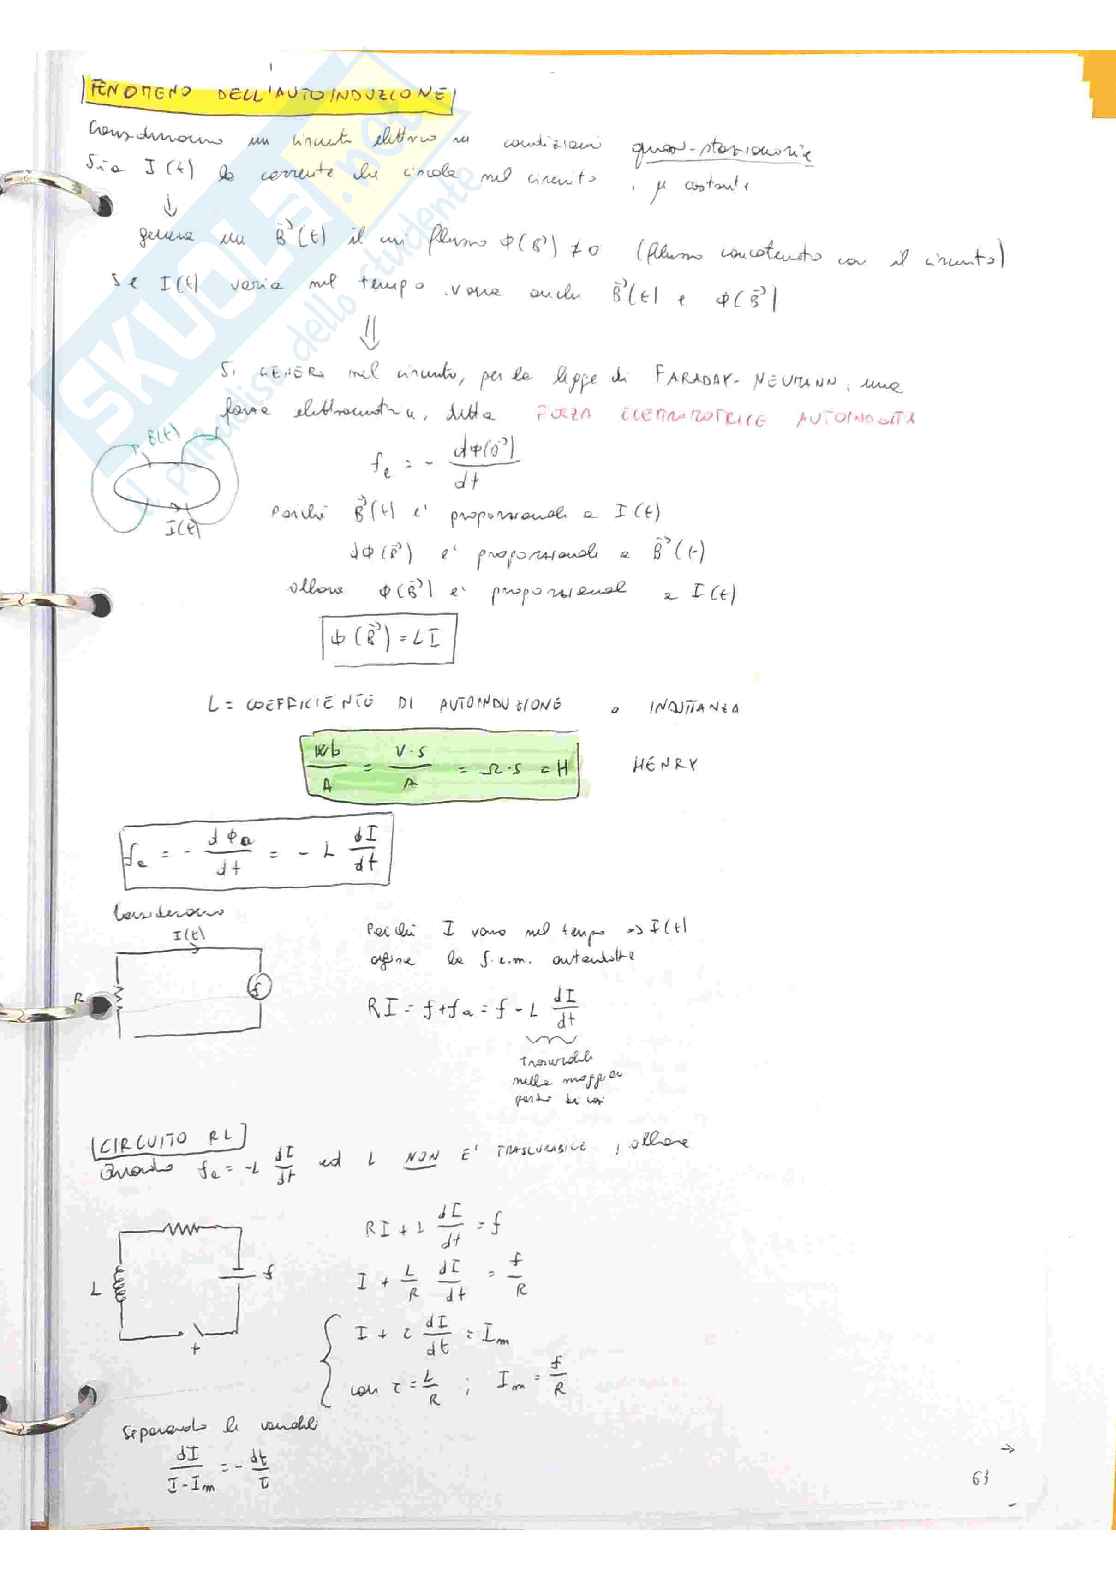 FENOMENO DELL'AUTOINDUZIONE
Consideriamo un circuito elettrico in condizioni quasi-stazionarie
Sia I(t) la corrente che circola nel circuito, μ costante
↓
genera un B⃗(t) il cui flusso Φ(B⃗) ≠ 0 (flusso concatenato con il circuito)
Se I(t) varia nel tempo, varia anche B⃗(t) e Φ(B⃗)
⇓
Si GENERA nel circuito, per la legge di FARADAY-NEUMANN, una
forza elettromotrice, detta FORZA ELETTROMOTRICE AUTOINDOTTA
B(t)
I(t)
fe = - dΦ(B⃗)/dt
Poiché B⃗(t) e' proporzionale a I(t)
dΦ(B⃗) e' proporzionale a B⃗(t)
allora Φ(B⃗) e' proporzionale a I(t)
Φ(B⃗) = LI
L = COEFFICIENTE DI AUTOINDUZIONE o INDUTTANZA
Wb/A = V·s/A = Ω·s = H HENRY
fe = - dΦa/dt = - L dI/dt
Consideriamo
I(t)
R
f
Poiché I varia nel tempo => I(t)
la f.e.m. autoindotta
RI = f + fa = f - L dI/dt
trascurabile
nella maggior
parte dei casi
CIRCUITO RL
Quando fe = -L dI/dt ed L NON E' TRASCURABILE, allora
L
f
+
RI + L dI/dt = f
I + L/R dI/dt = f/R
I + τ dI/dt = Im
con τ = L/R ; Im = f/R
Separando le variabili
dI/(I-Im) = - dt/τ
→
63
SKUOLA.net
il paradiso dello studente